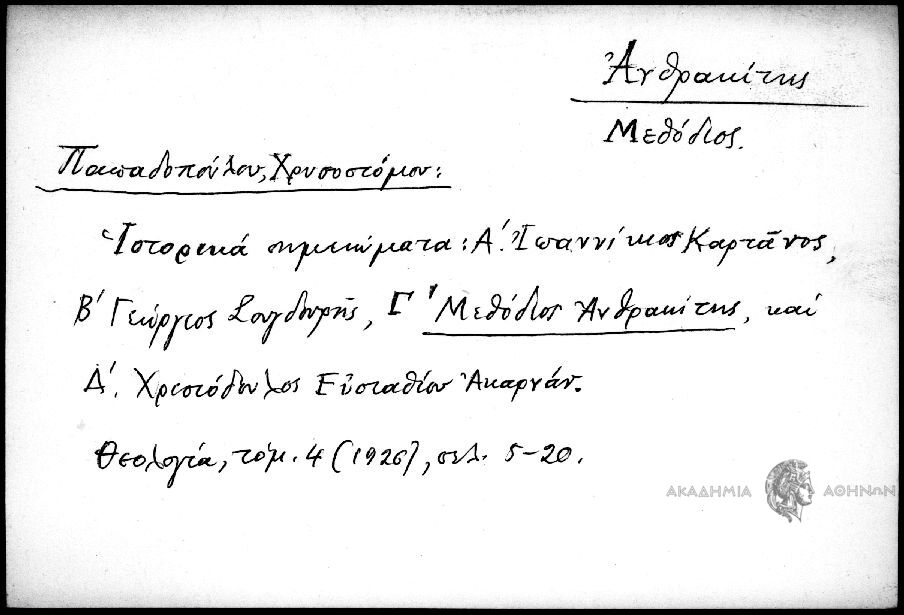 Ἀνθρακίτης
Μεθόδιος.
Παπαδοπούλου, Χρυσοστόμου:
Ἱστορικά σημειώματα: Α΄. Ἰωαννίκιος Καρτᾶνος,
Β΄ Γεώργιος Σουγδουρῆς, Γ΄ Μεθόδιος Ἀνθρακίτης, καί
Δ΄. Χριστόδουλος Εὐσταθίου Ἀκαρνάν.
Θεολογία, τόμ. 4 (1926), σελ. 5-20.
ΑΚΑΔΗΜΙΑ ΑΘΗΝΩΝ